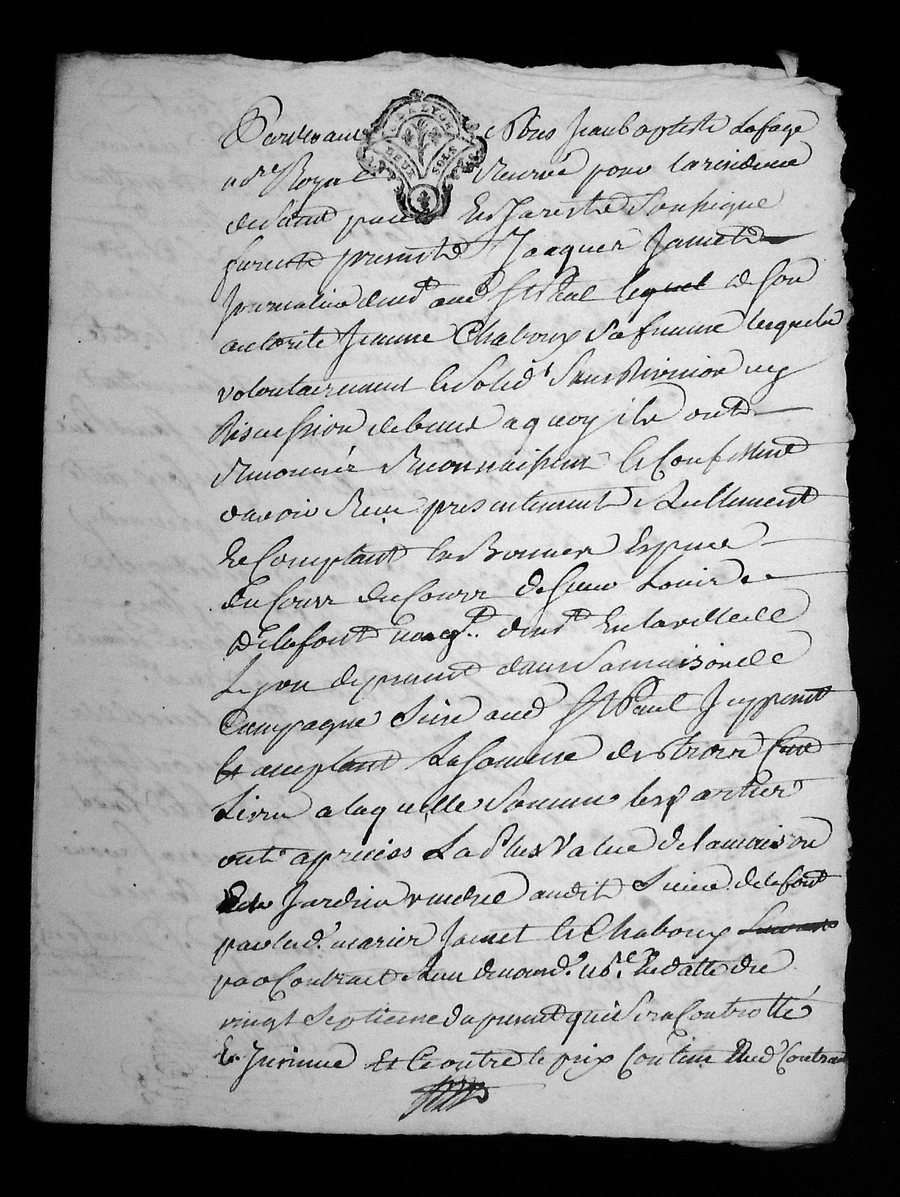 Pardevant Nous Jean baptiste Lafage
no.re Royal Reservé pour la residence
de St paul En Jarest Soussigné
furent present Jacques Jamet
Journalier dem.t aud. St Paul lequel de Son
autorité Jeanne Chaboux Sa femme lesquels
volontairement et Solid.t Sans Division ny
Discussion de biens a quoy ils ont
Renoncés Reconnaissent et Confessent
d'avoir Reçu presentement Reellement
Et Comptant En Bonnes Especes
du Cours de Sieur Louis
Delafont neg.t dem.t En la ville de
Lyon de present dans Sa maison de
Campagne Size aud. St Paul Icy present
Et acceptant La Somme de trois Cent
Livres a laquelle Somme les parties
ont apreciés La Plus Value de la maison
Et Jardin vendus audit Sieur delafont
par les d. mariés Jamet et Chaboux
par Contract Reçu no.re En datte du
vingt Septieme du present qui Sera Controllé
Et Insinué Et Ce outre le prix Contenu Aud. Contrat
LA LYON
DEUX SOLS